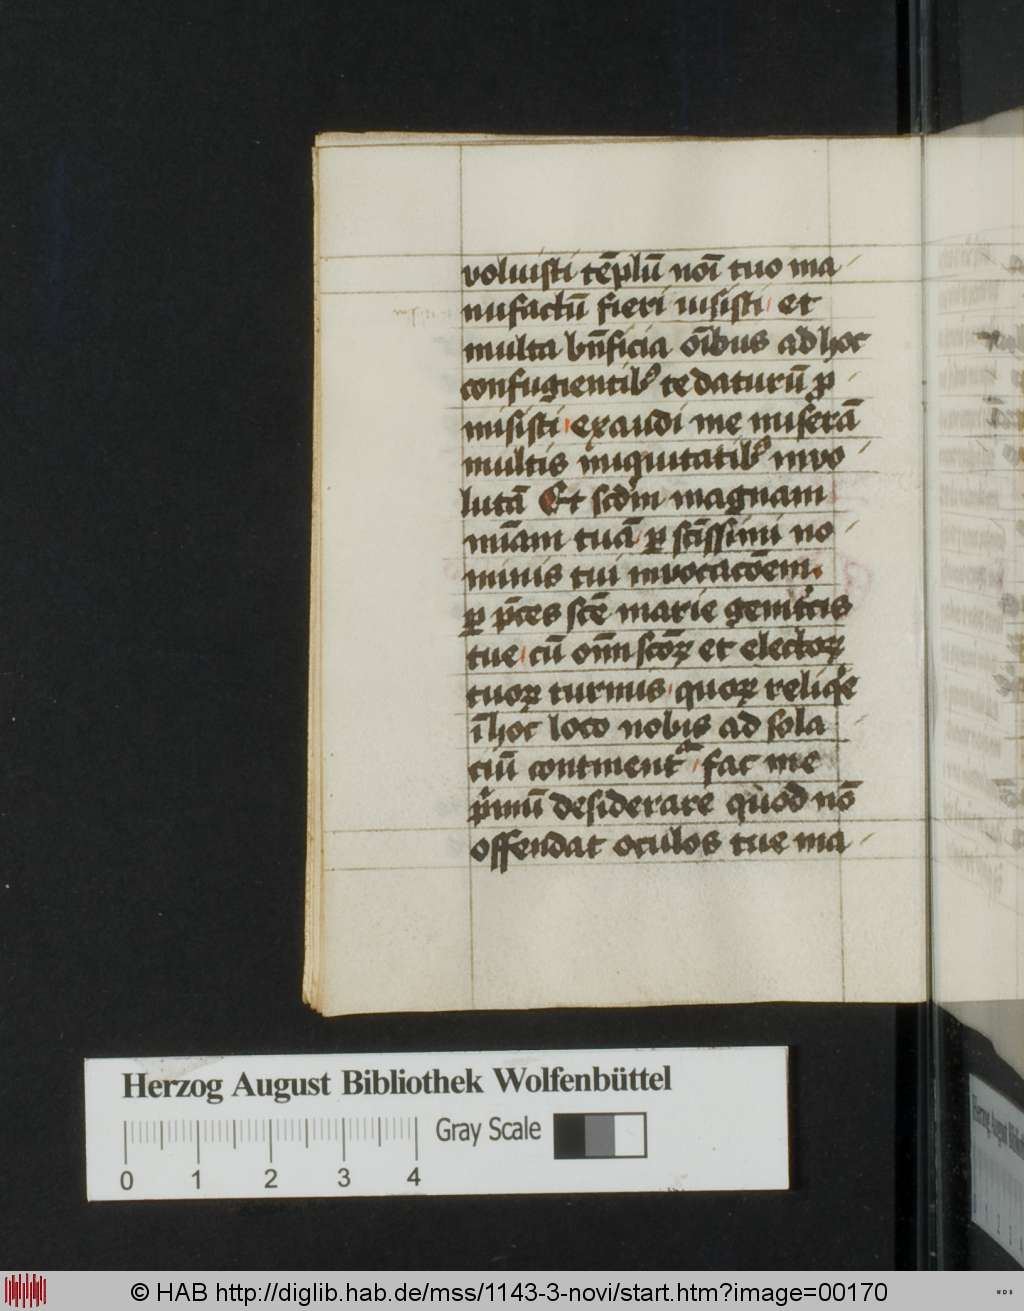 voluisti te̅plu̅ noi̅ tuo ma
nufactu̅ fieri iusisti et
multa bn̅ficia oi̅bus ad hoc
confugientibꝰ te daturu̅ p̲
misisti exaudi me misera̅
multis iniquitatibꝰ invo
luta̅ Et scd̅m magnam
mi̅am tua̅ ꝑ sc̅issimi no
minis tui invocaco̅em
ꝑ p̅ces sce̅ marie genit͛cis
tue cu̅ om̅i sc̅oꝝ et electoꝝ
tuoꝝ turmis quoꝝ reliq͛e
i̅ hoc loco nobis ad sola
ciu̅ continent᷑ fac me
p͛mu̅ desiderare quod no̅
offendat oculos tue ma
Herzog August Bibliothek Wolfenbüttel
Gray Scale
0 1 2 3 4
© HAB http://diglib.hab.de/mss/1143-3-novi/start.htm?image=00170